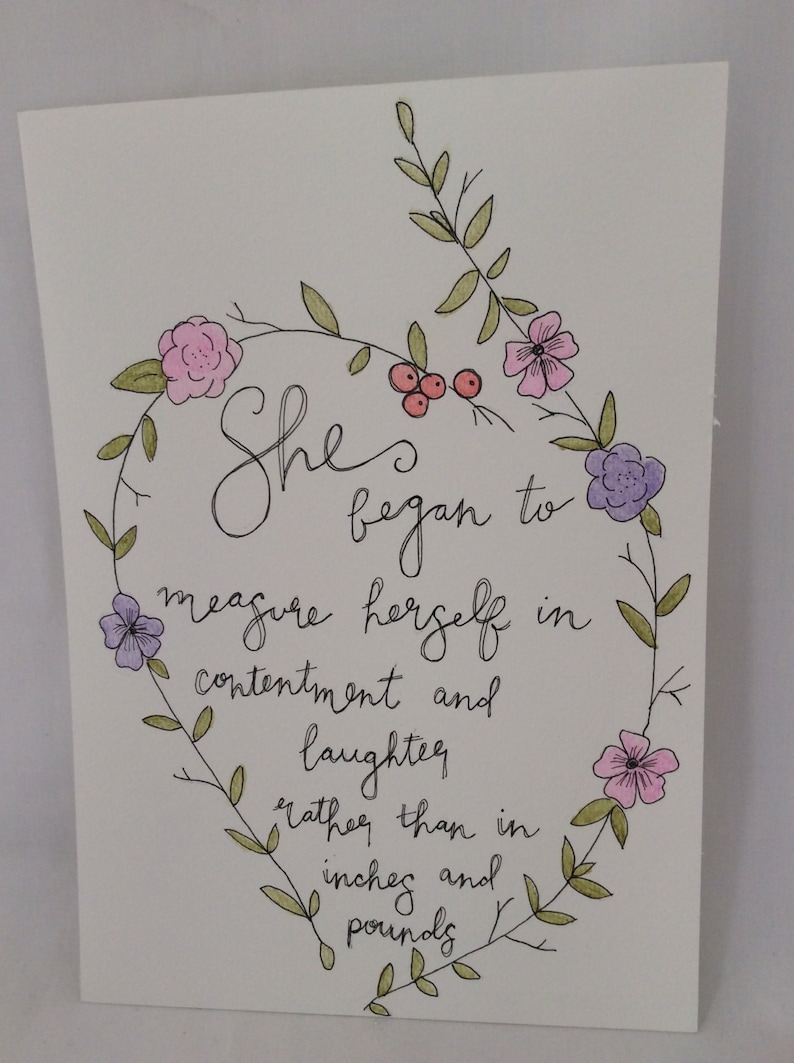 She
began to
measure herself in
contentment and
laughter
rather than in
inches and
pounds